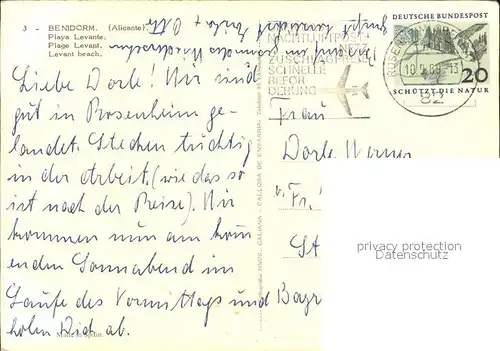 3 - BENDORM. (Alicante)
Playa Levante.
Plage Levant.
Levant beach.
Liebe Dorle! Wir sind
gut in Rosenheim ge-
landet. Stecken tüchtig
in der Arbeit. (wie das so
ist nach der Reise). Wir
kommen nun am kom
enden Sonnabend im
Laufe des Vormittags und
holen Dich ab.
Made in Spain.
NACHTLUFTPOST
ZUSCHLAGFREIE
SCHNELLE
BEFÖR
DERUNG
DEUTSCHE BUNDESPOST
20
SCHÜTZT DIE NATUR
82
Frau
Dorle Werner
Fr.
St
Bayr
privacy protection
Datenschutz